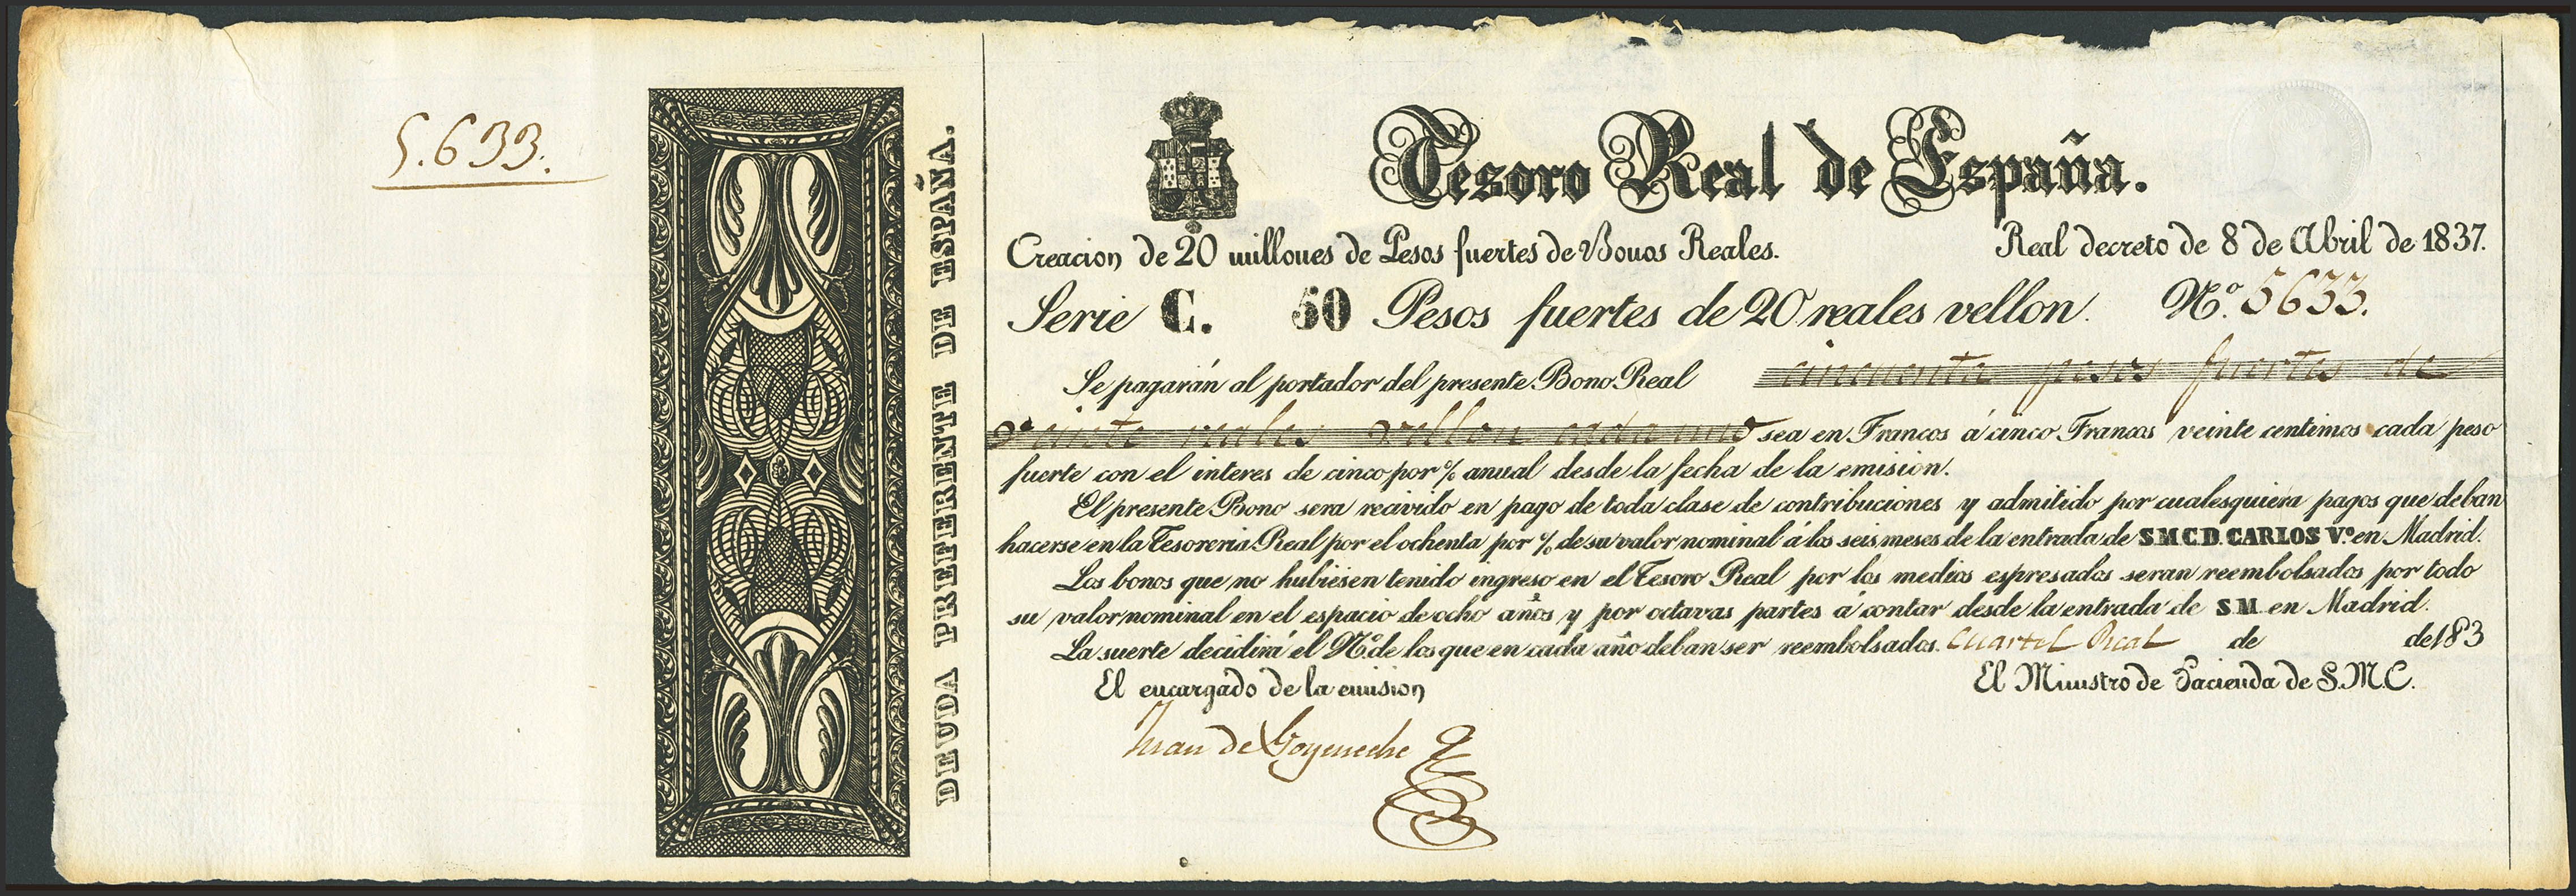 5.633.
DEUDA PREFERENTE DE ESPAÑA.
Tesoro Real de España.
Creacion de 20 millones de Pesos fuertes de Bonos Reales. Real decreto de 8 de Abril de 1837.
Serie C. 50 Pesos fuertes de 20 reales vellon. Nº. 5633.
Se pagarán al portador del presente Bono Real cincuenta pesos fuertes de
veinte reales vellon cada uno sea en Francos á cinco Francos veinte centimos cada peso
fuerte con el interes de cinco por % anual desde la fecha de la emision.
El presente Bono sera recivido en pago de toda clase de contribuciones y admitido por cualesquiera pagos que deban
hacerse en la Tesoreria Real por el ochenta por % de su valor nominal á los seis meses de la entrada de S.M.C.D. CARLOS Vº. en Madrid.
Los bonos que no hubiesen tenido ingreso en el Tesoro Real por los medios espresados seran reembolsados por todo
su valor nominal en el espacio de ocho años y por octavas partes á contar desde la entrada de S.M. en Madrid.
La suerte decidirá el Nº. de los que en cada año deban ser reembolsados. Cuartel Real de de 183
El encargado de la emision El Ministro de Hacienda de S.M.C.
Juan de Goyeneche